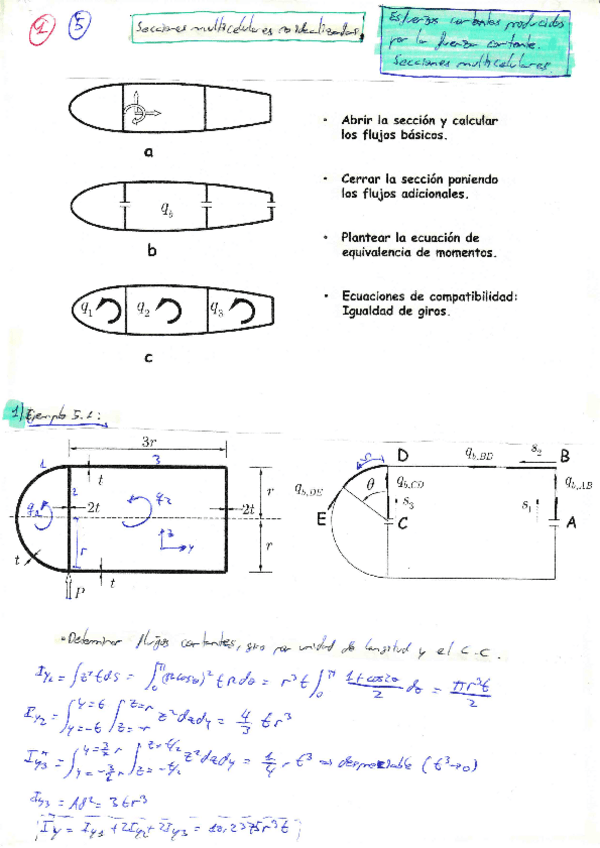 1 5 Secciones multicelulares no idealizadas.
Esfuerzos cortantes producidos
por la fuerza cortante.
Secciones multicelulares.
a
• Abrir la sección y calcular
los flujos básicos.
q_b
b
• Cerrar la sección poniendo
los flujos adicionales.
• Plantear la ecuación de
equivalencia de momentos.
q_1 q_2 q_3
c
• Ecuaciones de compatibilidad:
Igualdad de giros.
1) Ejemplo 5.1:
3r
1 3
t
2
q_2
2t
2t
r
r
r
z
y
t
t
P
D
s_2
B
q_{b,BD}
q_{b,DE}
θ
q_{b,CD}
s_3
q_{b,AB}
s_1
E
C
A
• Determinar flujos cortantes, giro por unidad de longitud y el C.C.
I_{y1} = ∫z²t ds = ∫_0^π (r cosθ)² t r dθ = r³t ∫_0^π (1+cos2θ)/2 dθ = πr³t/2
I_{y2} = ∫_{y=-t}^{y=t} ∫_{z=-r}^{z=r} z² dz dy = 4/3 t r³
I_{y3}^* = ∫_{y=-3/2 r}^{y=3/2 r} ∫_{z=-t/2}^{z=t/2} z² dz dy = 1/4 r t³ ⇒ despreciable (t³→0)
I_{y3} = Ad² = 3tr³
I_y = I_{y1} + 2I_{y2} + 2I_{y3} = 10,2375r³t